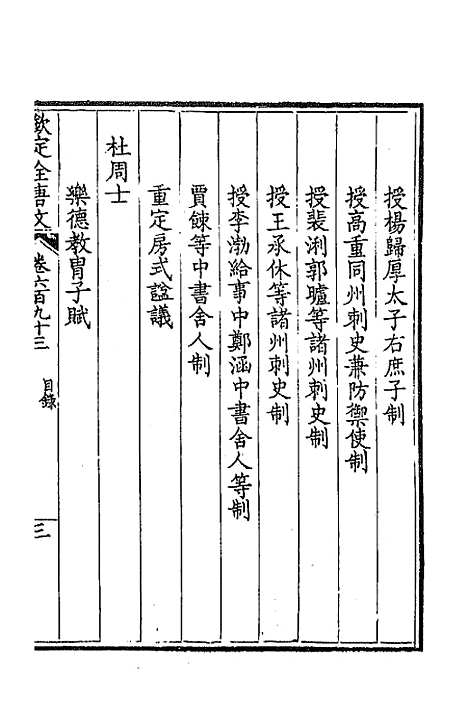 授楊歸厚太子右庶子制
授高重同州刺史兼防禦使制
授裴浰郭驢等諸州刺史制
授王承休等諸州刺史制
授李渤給事中鄭涵中書舍人等制
賈餗等中書舍人制
重定房式諡議
杜周士
樂德教胄子賦
欽定全唐文 卷六百九十三 目錄 三